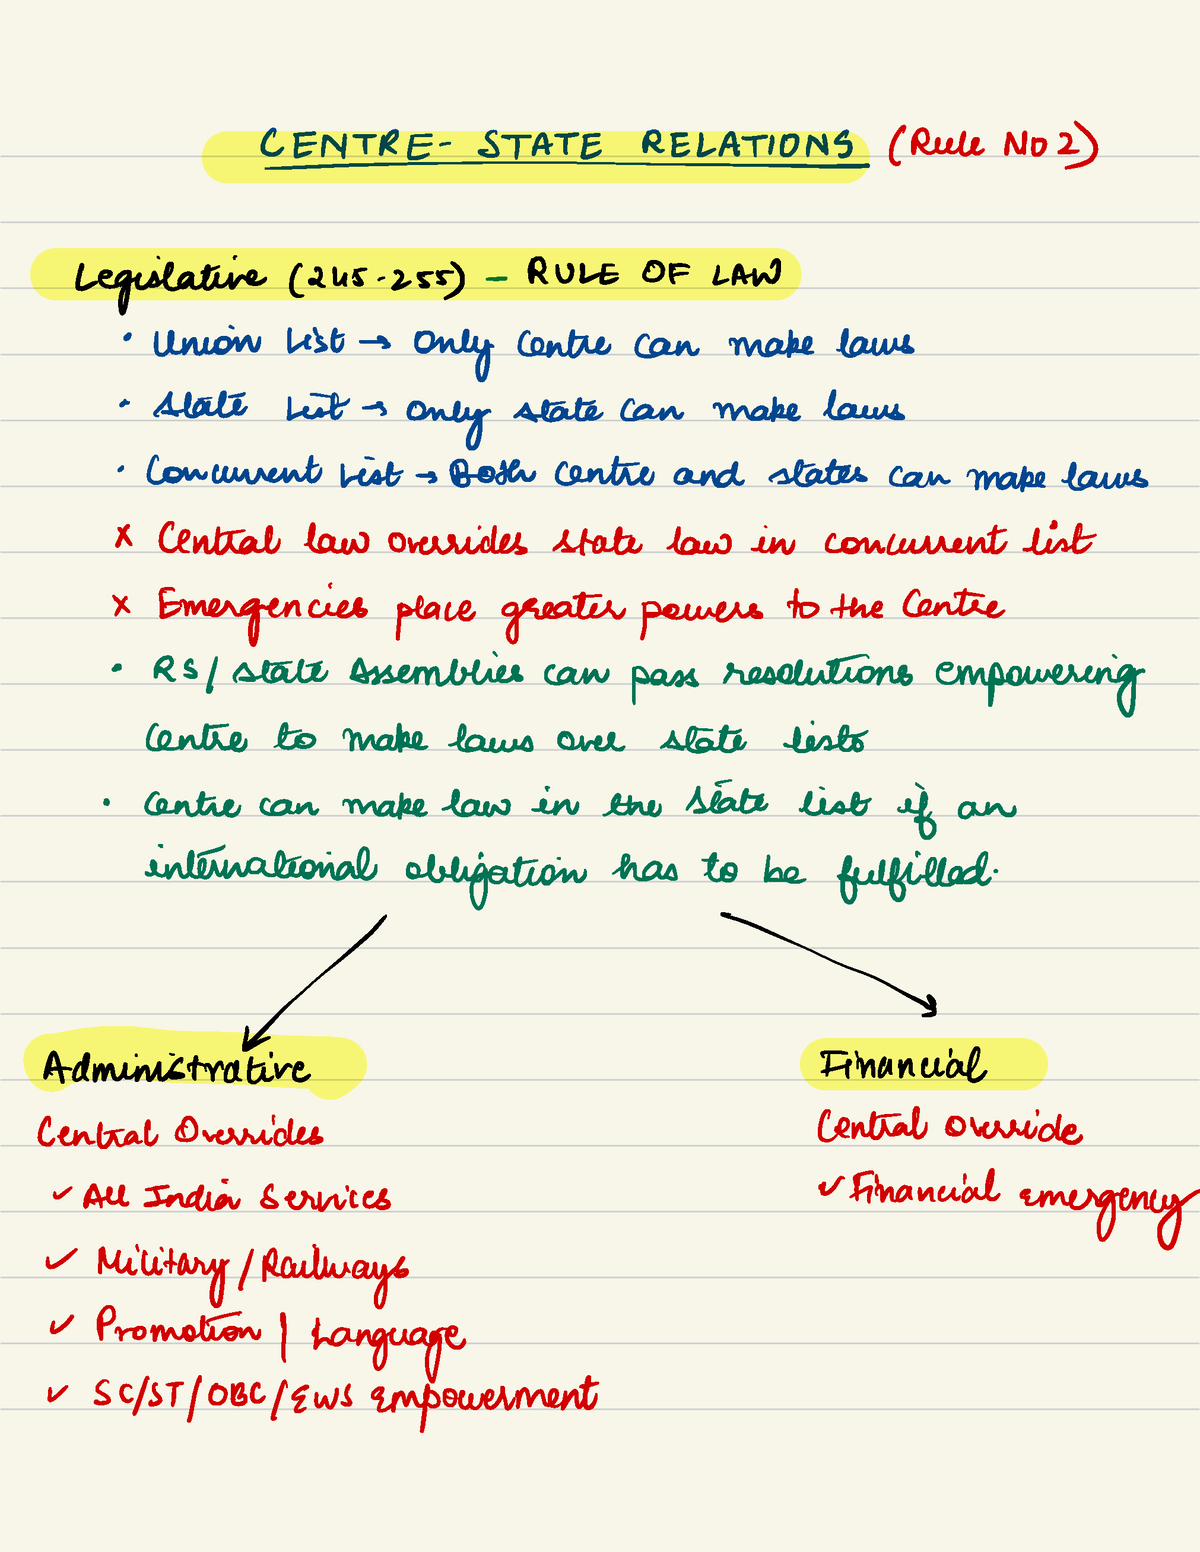 CENTRE- STATE RELATIONS (Rule No 2)
Legislative (245-255) - RULE OF LAW
• Union List → Only Centre can make laws
• State List → Only state can make laws
• Concurrent List → Both Centre and states can make laws
x Central law overrides state law in concurrent list
x Emergencies place greater powers to the Centre
• RS/ State Assemblies can pass resolutions empowering
Centre to make laws over state lists
• Centre can make law in the State list if an
international obligation has to be fulfilled.
Administrative
Central Overrides
✓ All India Services
✓ Military / Railways
✓ Promotion | Language
✓ SC/ST/OBC/EWS Empowerment
Financial
Central Override
✓ Financial emergency